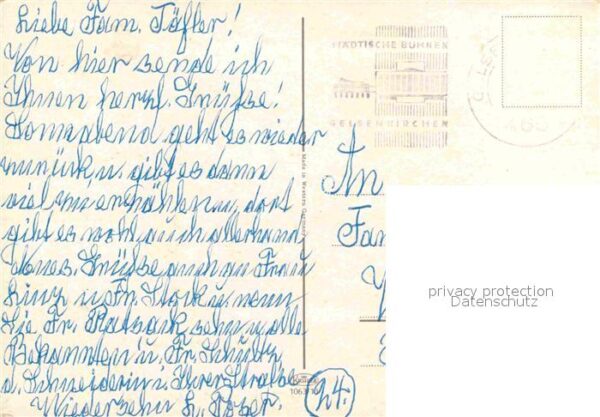 Liebe Fam. Täfler!
Von hier sende ich
Ihnen herzl. Grüße!
Sonnabend geht es wieder
zurück u. gibt es dann
viel zu erzählen u. dort
gibt es wohl auch allerhand
Neues. Grüße auch an Frau
u. Fr. Stork u. wenn
Sie Fr. sehn u. alle
Bekannten u. Fr. Schulz
d. Schneiderin i. Ihrer Straße
Wiedersehn
STÄDTISCHE BÜHNEN
GELSENKIRCHEN
465
Made in Western Germany
An
Fam
privacy protection
Datenschutz
1063
24.